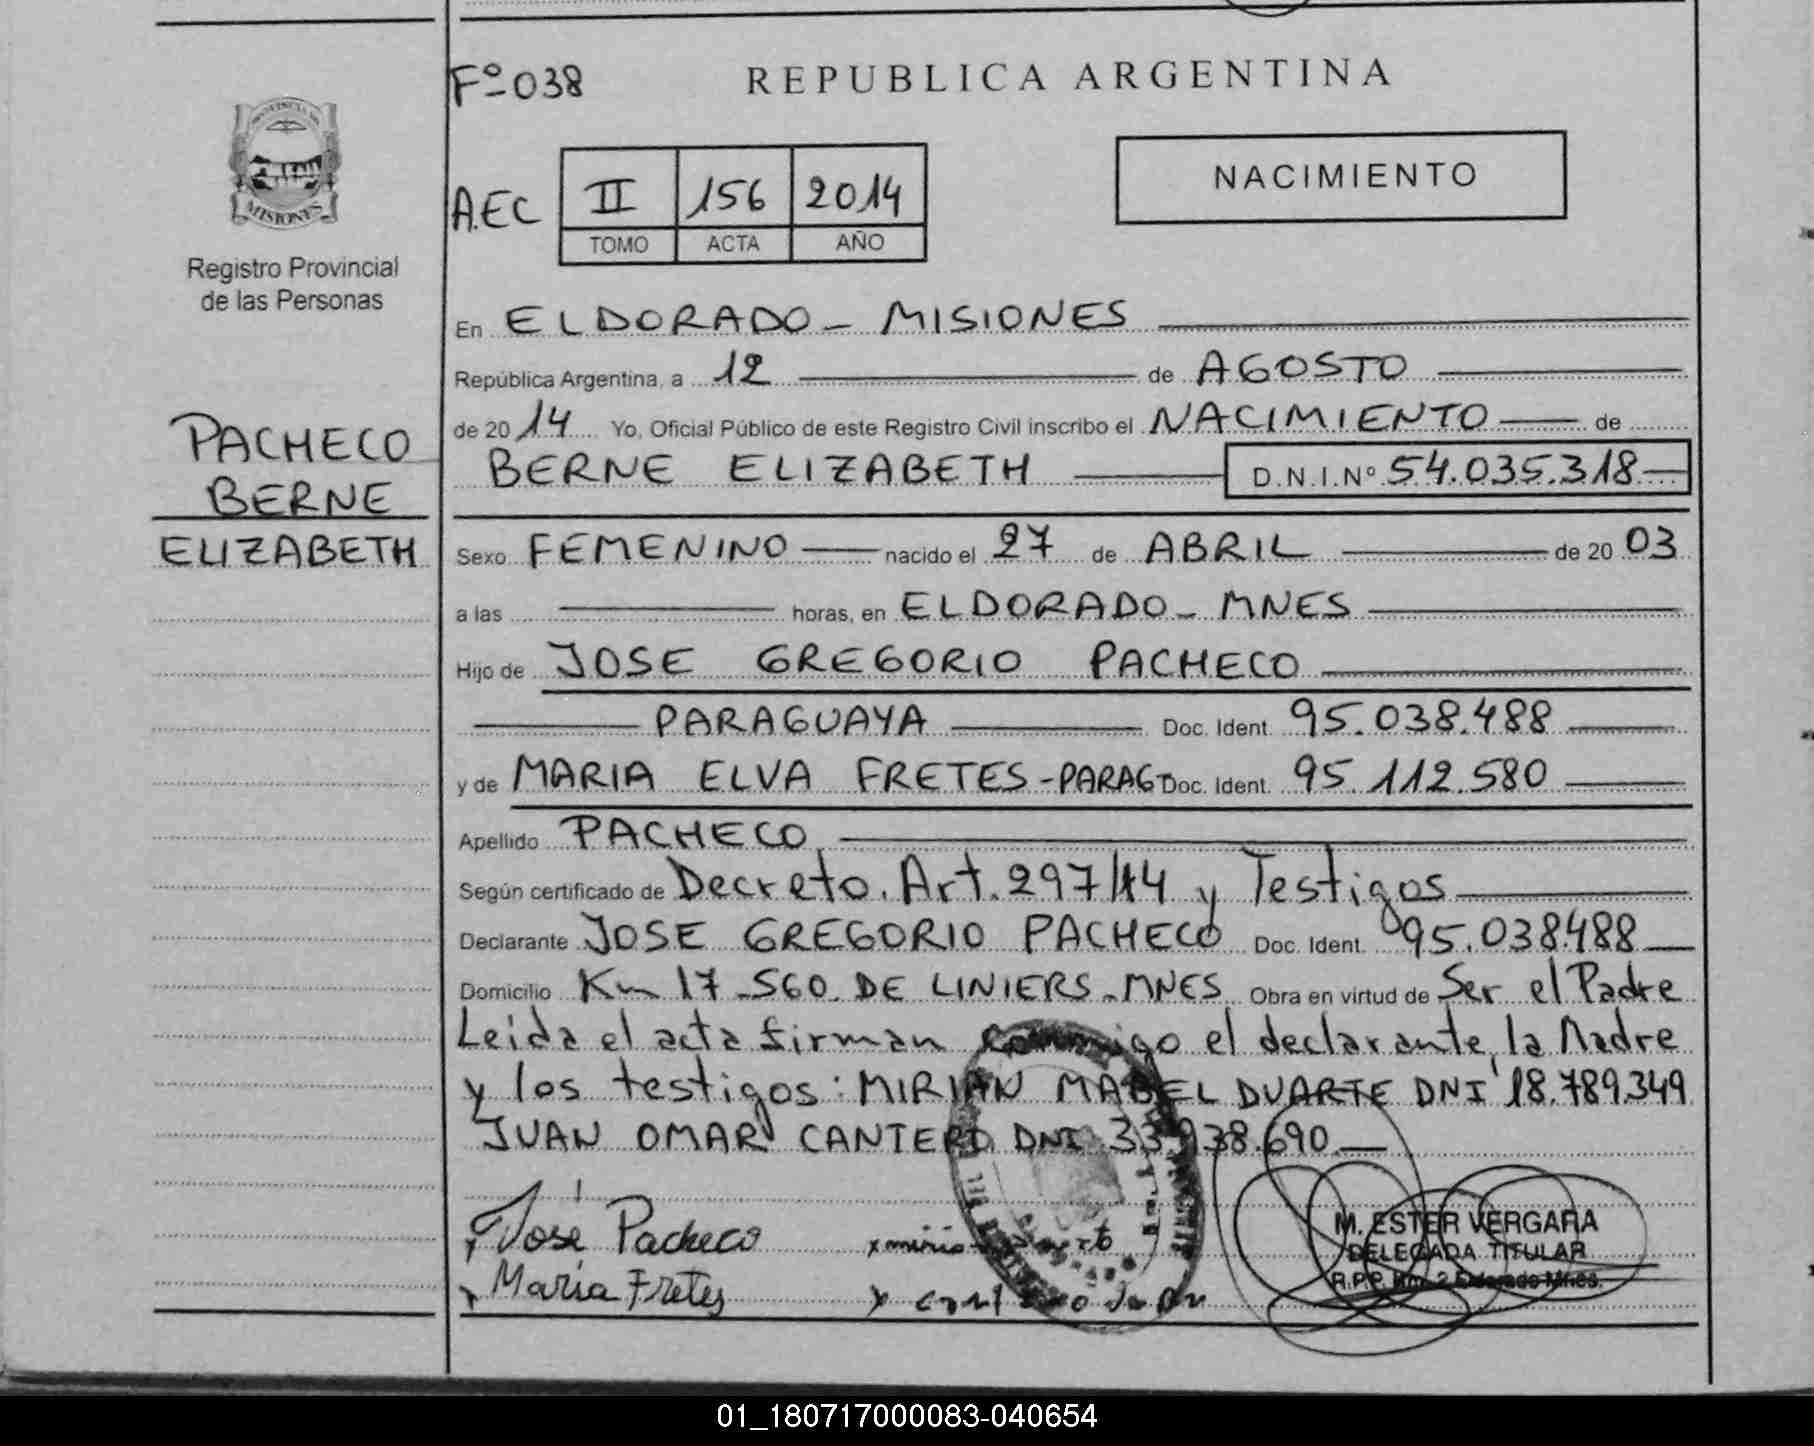 Fº 038
REPUBLICA ARGENTINA
PROVINCIA DE
MISIONES
A.EC
II 156 2014
TOMO ACTA AÑO
NACIMIENTO
Registro Provincial
de las Personas
PACHECO
BERNE
ELIZABETH
En ELDORADO - MISIONES
República Argentina, a 12 de AGOSTO
de 2014 Yo, Oficial Público de este Registro Civil inscribo el NACIMIENTO de
BERNE ELIZABETH D.N.I.Nº 54.035.318
Sexo FEMENINO nacido el 27 de ABRIL de 2003
a las horas, en ELDORADO - MNES
Hijo de JOSE GREGORIO PACHECO
PARAGUAYA Doc. Ident. 95.038.488
y de MARIA ELVA FRETES - PARAG Doc. Ident. 95.112.580
Apellido PACHECO
Según certificado de Decreto. Art. 297/14 y Testigos
Declarante JOSE GREGORIO PACHECO Doc. Ident. 95.038488
Domicilio Km 17 - 560. DE LINIERS - MNES Obra en virtud de Ser el Padre
Leida el acta firman conmigo el declarante, la Madre
y los testigos: MIRIAN MABEL DUARTE DNI 18.789.349
JUAN OMAR CANTERO DNI 33938.690
x José Pacheco
x María Fretes
M. ESTER VERGARA
DELEGADA TITULAR
R.P.P. Km. 2 Eldorado Mnes.
01_180717000083-040654